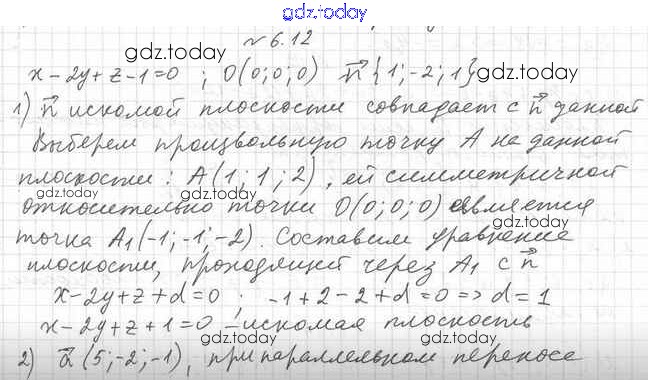 gdz.topo
№ 6.12
gdz.topo
gdz.topo
x - 2y + z - 1 = 0 ; O(0; 0; 0) n⃗ {1; -2; 1}
1) n⃗ искомой плоскости совпадает с n⃗ данной
Выберем произвольную точку A на данной
плоскости: A(1; 1; 2), ей симметричной
gdz.topo
gdz.topo
относительно точки O(0; 0; 0) является
точка A₁(-1; -1; -2). Составим уравнение
плоскости, проходящей через A₁ с n⃗
gdz.topo
x - 2y + z + d = 0 ; -1 + 2 - 2 + d = 0 => d = 1
x - 2y + z + 1 = 0 - искомая плоскость
gdz.topo
gdz.topo
2) a⃗ (5; -2; -1), при параллельном переносе